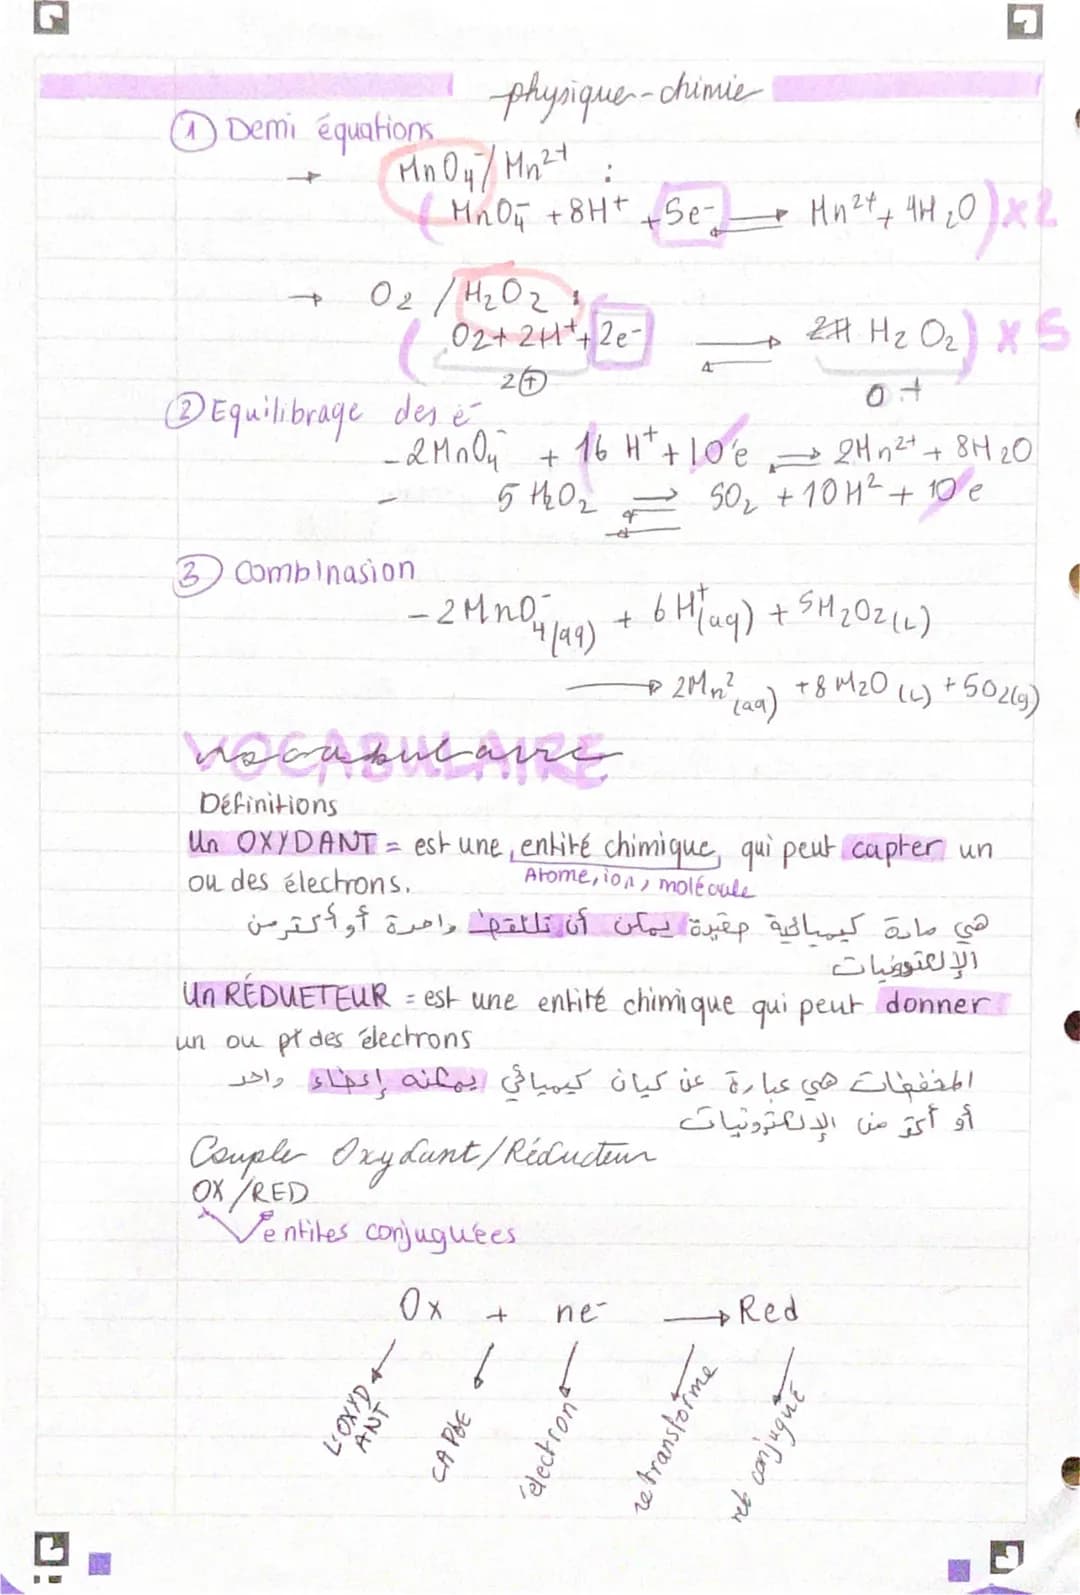 physique-chimie
① Demi équations
→ MnO₄⁻/Mn²⁺ :
( MnO₄⁻ + 8H⁺ + 5e⁻ ⇌ Mn²⁺ + 4H₂O ) x2
→ O₂ / H₂O₂ :
( O₂ + 2H⁺ + 2e⁻ ⇌ H₂O₂ ) x5
2⊕ 0+
② Equilibrage des e⁻
- 2MnO₄⁻ + 16 H⁺ + 10e ⇌ 2Mn²⁺ + 8H₂O
- 5 H₂O₂ ⇌ 5O₂ + 10H² + 10e
③ Combinasion
- 2MnO₄⁻(aq) + 6H⁺(aq) + 5H₂O₂(L)
→ 2Mn²(aq) + 8H₂O(L) + 5O₂(g)
VOCABULAIRE
vocabulaire
Définitions
Un OXYDANT = est une entité chimique, qui peut capter un
Atome, ion, molécule
ou des électrons.
هي مادة كيميائية يمكن أن تلتقط واحدة أو أكثر من
الإلكترونيات
Un RÉDUETEUR = est une entité chimique qui peut donner
un ou des électrons
المخفضات هي عبارة عن كيان كيميائي يمكنه إعطاء واحد
أو أكثر من الإلكترونيات
Couple Oxydant/Réducteur
OX/RED
entites conjuguées
Ox + ne⁻ → Red
L'OXYDANT
CAPTE
électron
se transforme
red conjugué